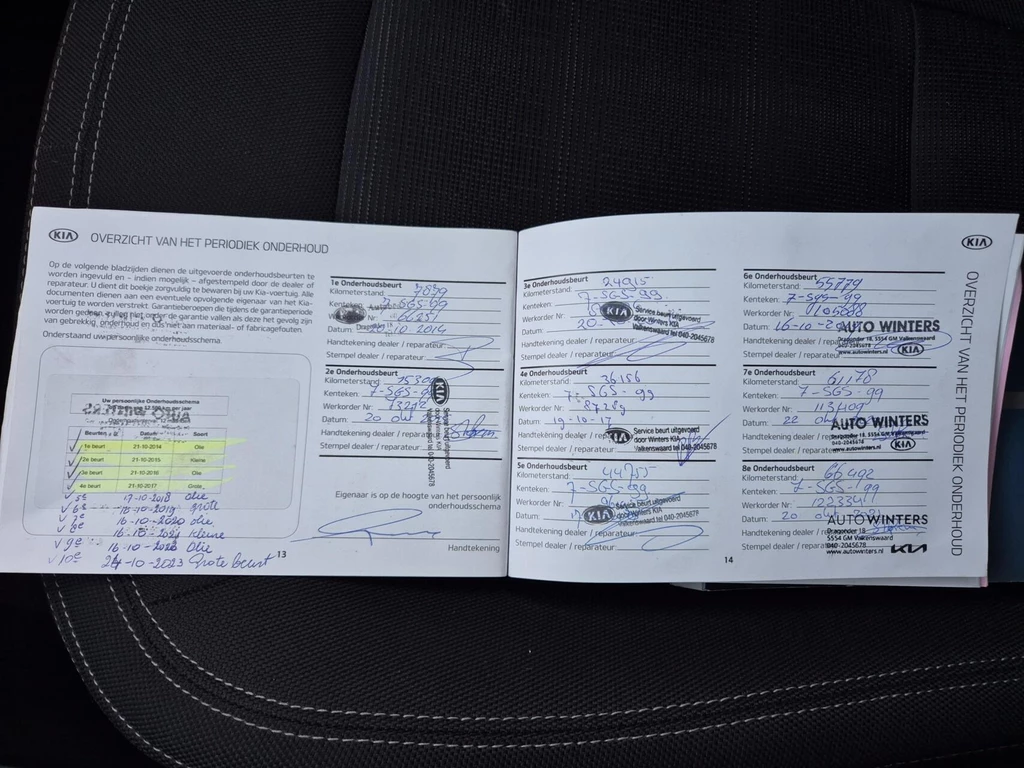 KIA OVERZICHT VAN HET PERIODIEK ONDERHOUD
Op de volgende bladzijden dienen de uitgevoerde onderhoudsbeurten te
worden ingevuld en – indien mogelijk – afgestempeld door de dealer of
reparateur. U dient dit boekje zorgvuldig te bewaren bij uw Kia-voertuig. Alle
documenten dienen aan een eventuele opvolgende eigenaar van het Kia-
voertuig te worden verstrekt. Garantieberoepen die tijdens de garantieperiode
worden gedaan, zullen niet onder de garantie vallen als deze het gevolg zijn
van gebrekkig onderhoud en dus niet aan materiaal- of fabricagefouten.
Onderstaand uw persoonlijke onderhoudsschema.
Uw persoonlijke Onderhoudsschema
Beurten Datum Soort
1e beurt 21-10-2014 Olie
2e beurt 21-10-2015 Kleine
3e beurt 21-10-2016 Olie
4e beurt 21-10-2017 Grote
5e 17-10-2018 olie
6e 16-10-2019 grote
7e 16-10-2020 olie
8e 16-10-2021 kleine
9e 16-10-2020 Olie
10e 24-10-2023 Grote beurt
13
1e Onderhoudsbeurt
Kilometerstand: 7899
Kenteken: 7-SGS-99
Datum: 20.10.2014
Handtekening dealer / reparateur:
Stempel dealer / reparateur:
2e Onderhoudsbeurt
Kilometerstand: 15300
Kenteken: 7-SGS-99
Werkorder Nr: 73212
Datum: 20 okt
Handtekening dealer / reparateur:
Stempel dealer / reparateur:
KIA Service beurt uitgevoerd
door Winters KIA
Valkenswaard tel 040-2045678
Eigenaar is op de hoogte van het persoonlijk
onderhoudsschema
Handtekening
3e Onderhoudsbeurt
Kilometerstand: 24915
Kenteken: 7-SGS-99
Werkorder Nr:
Datum: 20-
Handtekening dealer / reparateur:
Stempel dealer / reparateur:
KIA Service beurt uitgevoerd
door Winters KIA
Valkenswaard tel 040-2045678
4e Onderhoudsbeurt
Kilometerstand: 36156
Kenteken: 7-SGS-99
Werkorder Nr: 87289
Datum: 19-10-17
Handtekening dealer / reparateur:
Stempel dealer / reparateur:
KIA Service beurt uitgevoerd
door Winters KIA
Valkenswaard tel 040-2045678
5e Onderhoudsbeurt
Kilometerstand: 44755
Kenteken: 7-SGS-99
Werkorder Nr:
Datum: 17
Handtekening dealer / reparateur:
Stempel dealer / reparateur:
KIA Service beurt uitgevoerd
door Winters KIA
Valkenswaard tel 040-2045678
14
KIA
6e Onderhoudsbeurt
Kilometerstand: 55779
Kenteken: 7-SGS-99
Werkorder Nr: V105688
Datum: 16-10-2
Handtekening dealer / reparateur:
Stempel dealer / reparateur:
AUTO WINTERS
Dragonder 18, 5554 GM Valkenswaard
040-2045678
www.autowinters.nl KIA
7e Onderhoudsbeurt
Kilometerstand: 61178
Kenteken: 7-SGS-99
Werkorder Nr: 113409
Datum: 22 okt
Handtekening dealer / reparateur:
Stempel dealer / reparateur:
AUTO WINTERS
Dragonder 18, 5554 GM Valkenswaard
040-2045678
www.autowinters.nl KIA
8e Onderhoudsbeurt
Kilometerstand: 66492
Kenteken: 7-SGS-99
Werkorder Nr:
Datum: 20 okt
Handtekening dealer / reparateur:
Stempel dealer / reparateur:
AUTOWINTERS
Dragonder 18
5554 GM Valkenswaard
040-2045678
www.autowinters.nl KIA
OVERZICHT VAN HET PERIODIEK ONDERHOUD